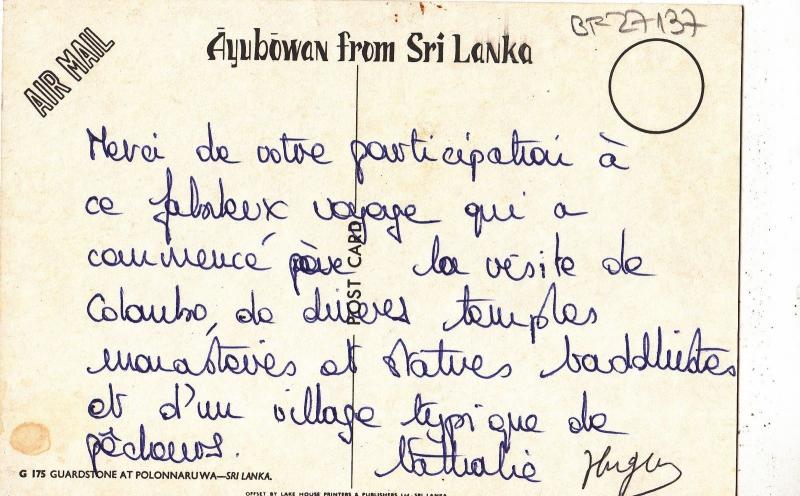 BF 27137
AIR MAIL
Āyubōwan from Sri Lanka
Merci de votre participation à
ce fabuleux voyage qui a
commencé par la visite de
Colombo, de divers temples
monastères et statues bouddhistes
et d'un village typique de
pêcheurs.
Nathalie Hugues
POST CARD
G 175 GUARDSTONE AT POLONNARUWA—SRI LANKA.
OFFSET BY LAKE HOUSE PRINTERS & PUBLISHERS LTD. SRI LANKA